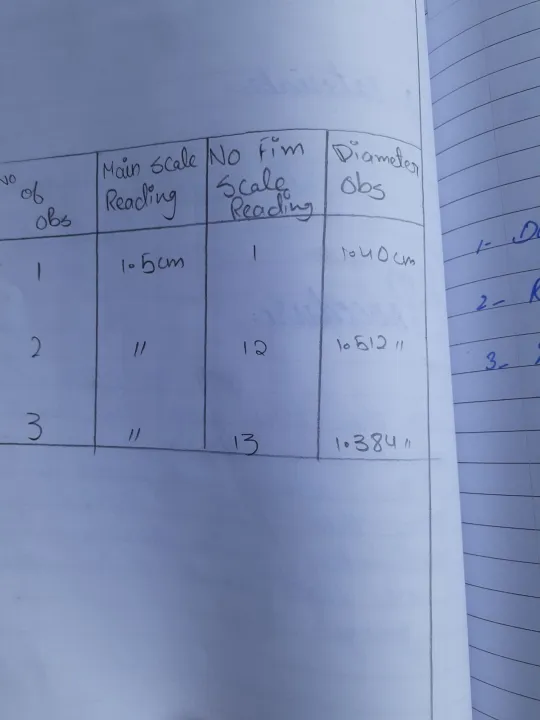 No of obs | Main Scale Reading | No Fim Scale Reading | Diameter obs
1 | 1.5cm | 1 | 1.40cm
2 | " | 12 | 1.512 "
3 | " | 13 | 1.384 "
1-
2-
3-